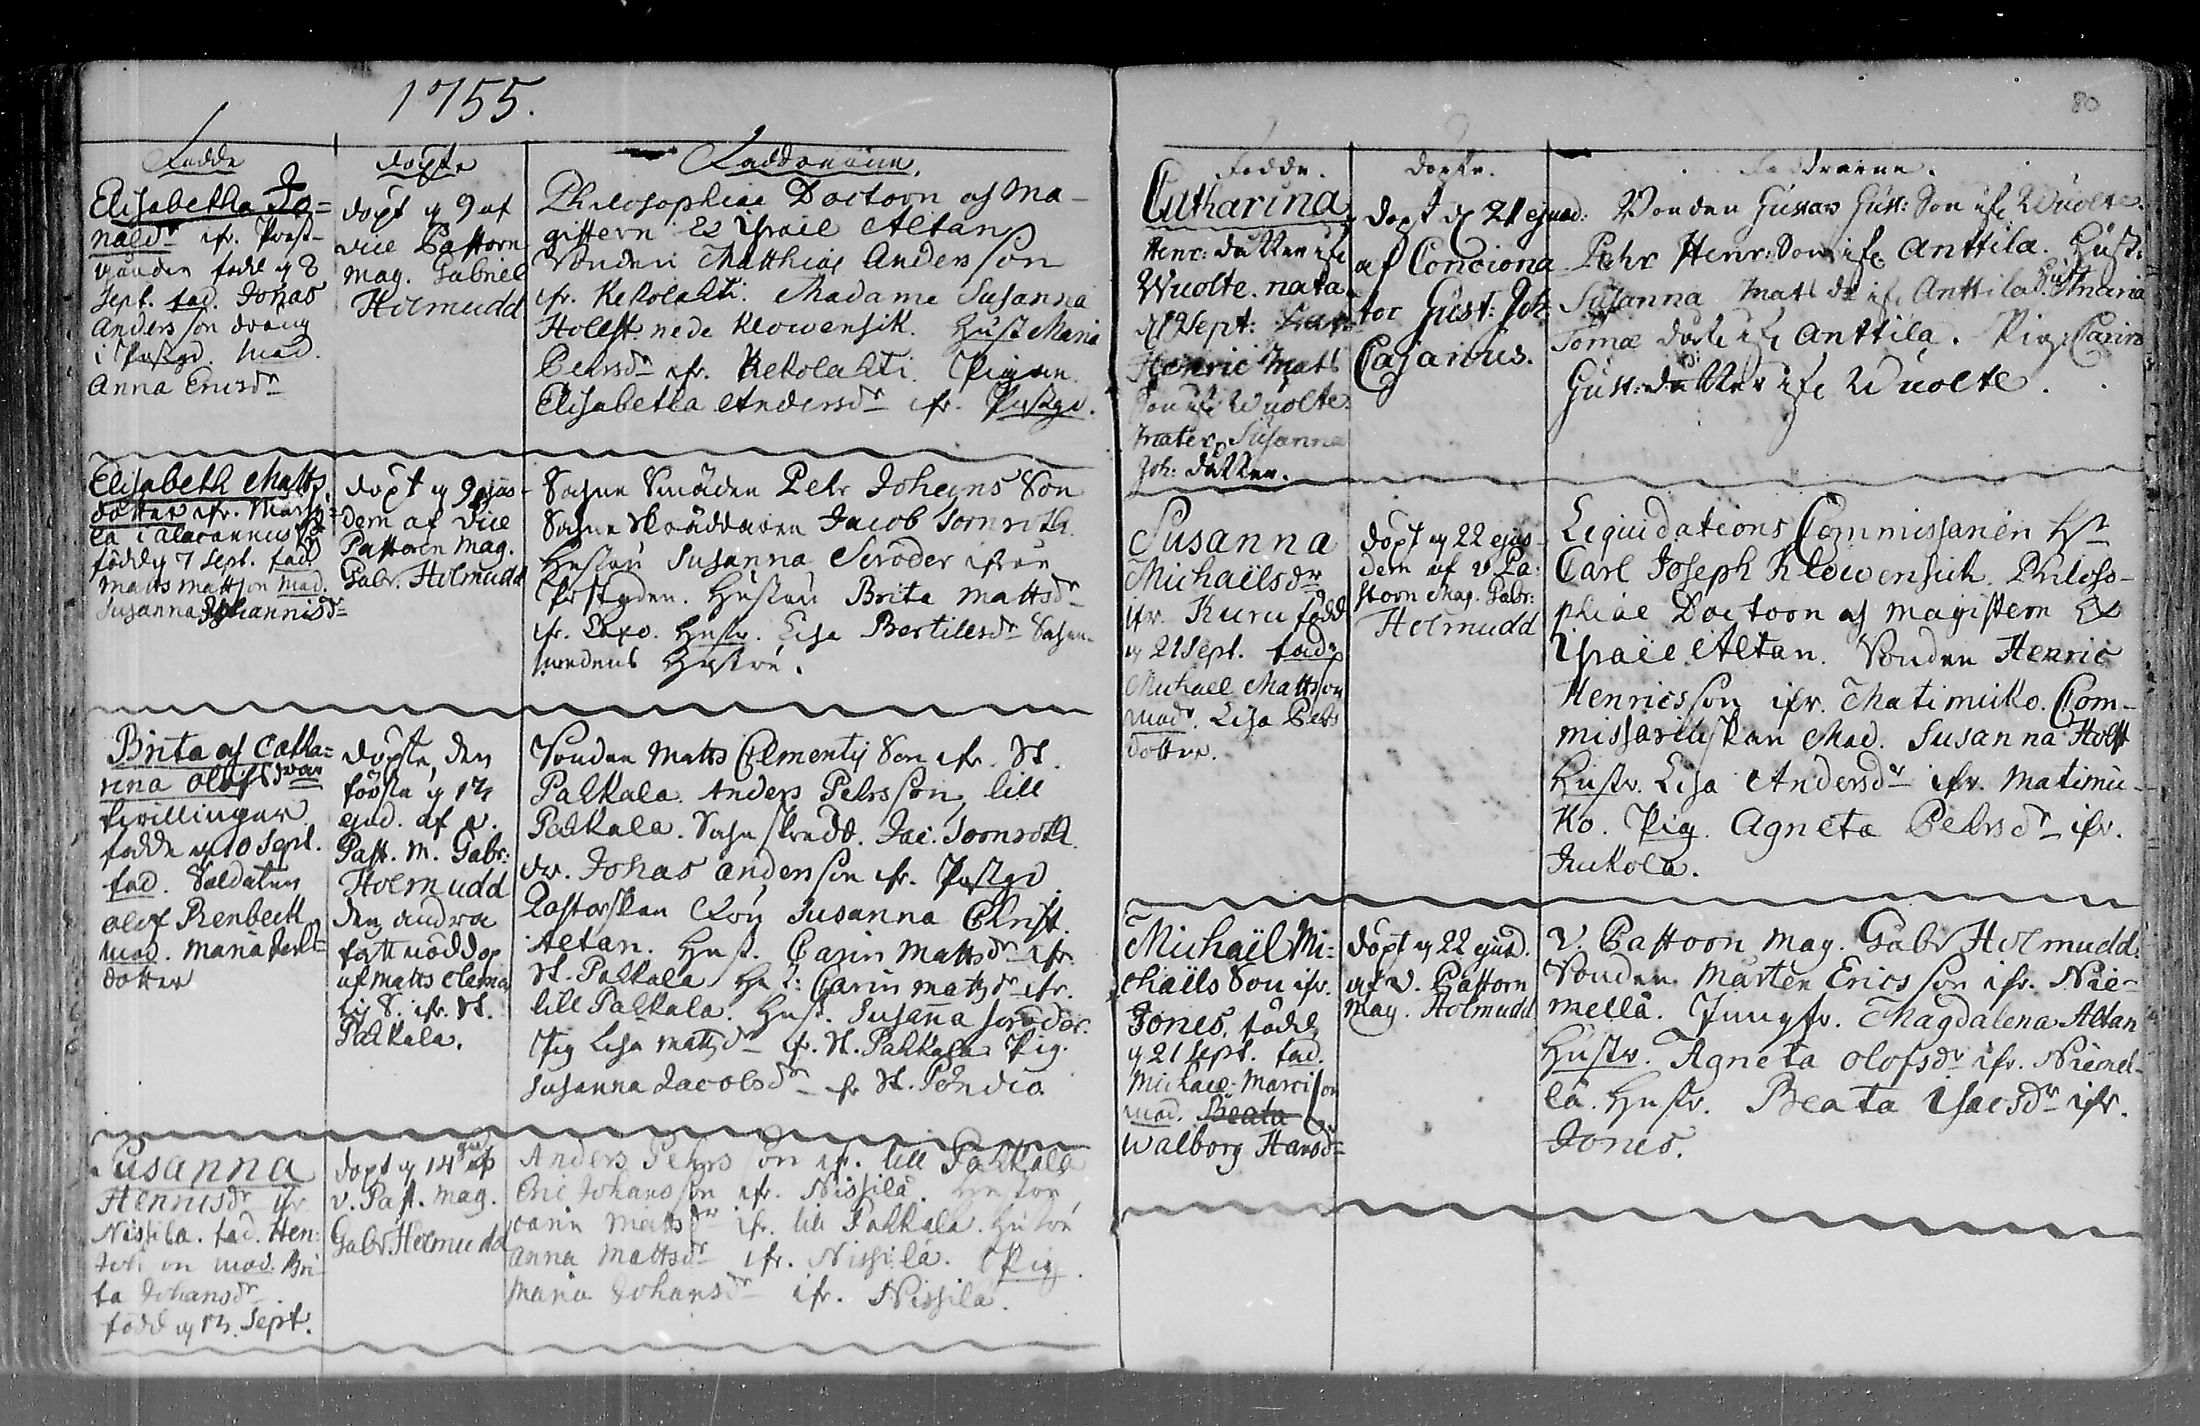 1755.
80
Födde
döpte
Faddrarne.
Elisabetha Jo=
næ dr ifr. Prest-
gården född y 8
Sept. fad. Jonas
Andersson dräng
i Prstgd. Mod.
Anna Ericsdr
döpt y 9 af
Vice Pastorn
Mag. Gabriel
Holmudd
Philosophiae Doctorn och Ma-
gistern Es Israel Altan
Bonden Matthias Andersson
ifr. Kekolahti. Madame Susanna
Holst. nede Klowensik. Hust Maria
Pehrsdr ifr. Kekolahti. Pigan
Elisabetha Andersdr ifr. Prstgd.
Elisabeth Matts
dotter ifr.
född y 7 Sept. fad
Matts Mattson Mod.
Susanna Johannisdr
döpt y 9 ejus-
dem af Vice
Pastorn Mag.
Gabr. Holmudd
Sochne Smeden Petr Johans Son
Sochne Skräddaren Jacob Tornroth
Hustru Susanna Scroder ifrån
Prstgden. Hustru Brita Mattsdr
ifr. Hustr. Lisa Bertillsdr Sochne
smedens Hustru.
Brita och Catha=
rina Olofsdrar
tvillingar
födde y 10 Sept.
fad. Soldaten
Olof Renbeck
Mod. Maria
dotter
Döpte, den
första y 12
ejud. af v.
Past. M. Gabr:
Holmudd
den andra
fått nöddop
af Matts Clemen
tij S. ifr. St.
Pakkala.
Bonden Matts Clementij Son ifr. St.
Pakkala. Anders Pehrsson lill
Pakkala. Sochn skredd. Jac. Tornroth
dr. Johas Andersson ifr. Prstgd
Pastorskan Susanna Christ.
Altan. Hust. Carin Mattsdr ifr.
St. Pakkala. Hust: Carin Mattsdr ifr.
lill Pakkala. Hust. Susanna Scroder.
Pig Lisa Mattsdr ifr. St. Pakkala Pig.
Susanna Jacobsdr ifr St.
Susanna
Henricsdr ifr
Nissila. fad. Hen:
Joh on mod. Bri-
ta Johansdr
född y 13. Sept.
Döpt y 14 af
v. Past. Mag.
Gabr. Holmudd
Anders Pehrsson ifr. lill Pakkala
Eric Johansson ifr. Nissilä. Hustru
Carin Mattsdr ifr. lill Pakkala. Hustru
Anna Mattsdr ifr. Nissilä. Pig
Maria Johansdr ifr. Nissilä.
Födde.
Döpte.
Faddrarne.
Catharina
Henr: dotter ifr
Wuolte. nata
Sept:
Henric Mats
Son ifr Wuolte
Mater Susanna
Joh: dotter.
Döpt d 21 ejusd:
af Conciona
tor Gust: Joh:
Cajanus.
Bonden Gustav Gust: Son ifr Wuolte.
Pehr Henr: Son ifr Anttila. Hust:
Susanna Mats dr ifr Anttila Hust Maria
Tomæ dotr ifr Anttila. Pig: Carin
Gust: dotter ifr Wuolte.
Susanna
Michaëlsdr
ifr. Kuru född
y 21 Sept. fadr
Michael Mattson
Modr. Lisa Pehrs
dotter.
Döpt y 22 ejus-
dem af v. Pa-
storn Mag. Gabr:
Holmudd
Liquidations Commissarien Hr
Carl Joseph Klowensich. Philoso-
phiæ Doctorn och Magistern Es
Israel Altan. Bonden Henric
Henricsson ifr. Matimiko. Com-
missaritskan Mad. Susanna Holst
Hustr. Lisa Andersdr ifr. Matimi-
ko. Pig. Agneta Pehrsdr ifr.
Jukola.
Michaël Mi-
chaëls Son ifr.
Jones, född
y 21 Sept. fad.
Michael Marcisson
Mod. Beata
Walborg Hansdr
Döpt y 22 ejusd.
af v. Pastorn
Mag. Holmudd
V. Pastorn Mag. Gabr Holmudd.
Bonden Mårten Ericsson ifr. Nie-
mellä. Jungfr. Magdalena Altan
Hustr. Agneta Olofsdr ifr. Niemel-
lä. Hustr. Beata Isacsdr ifr.
Jones.